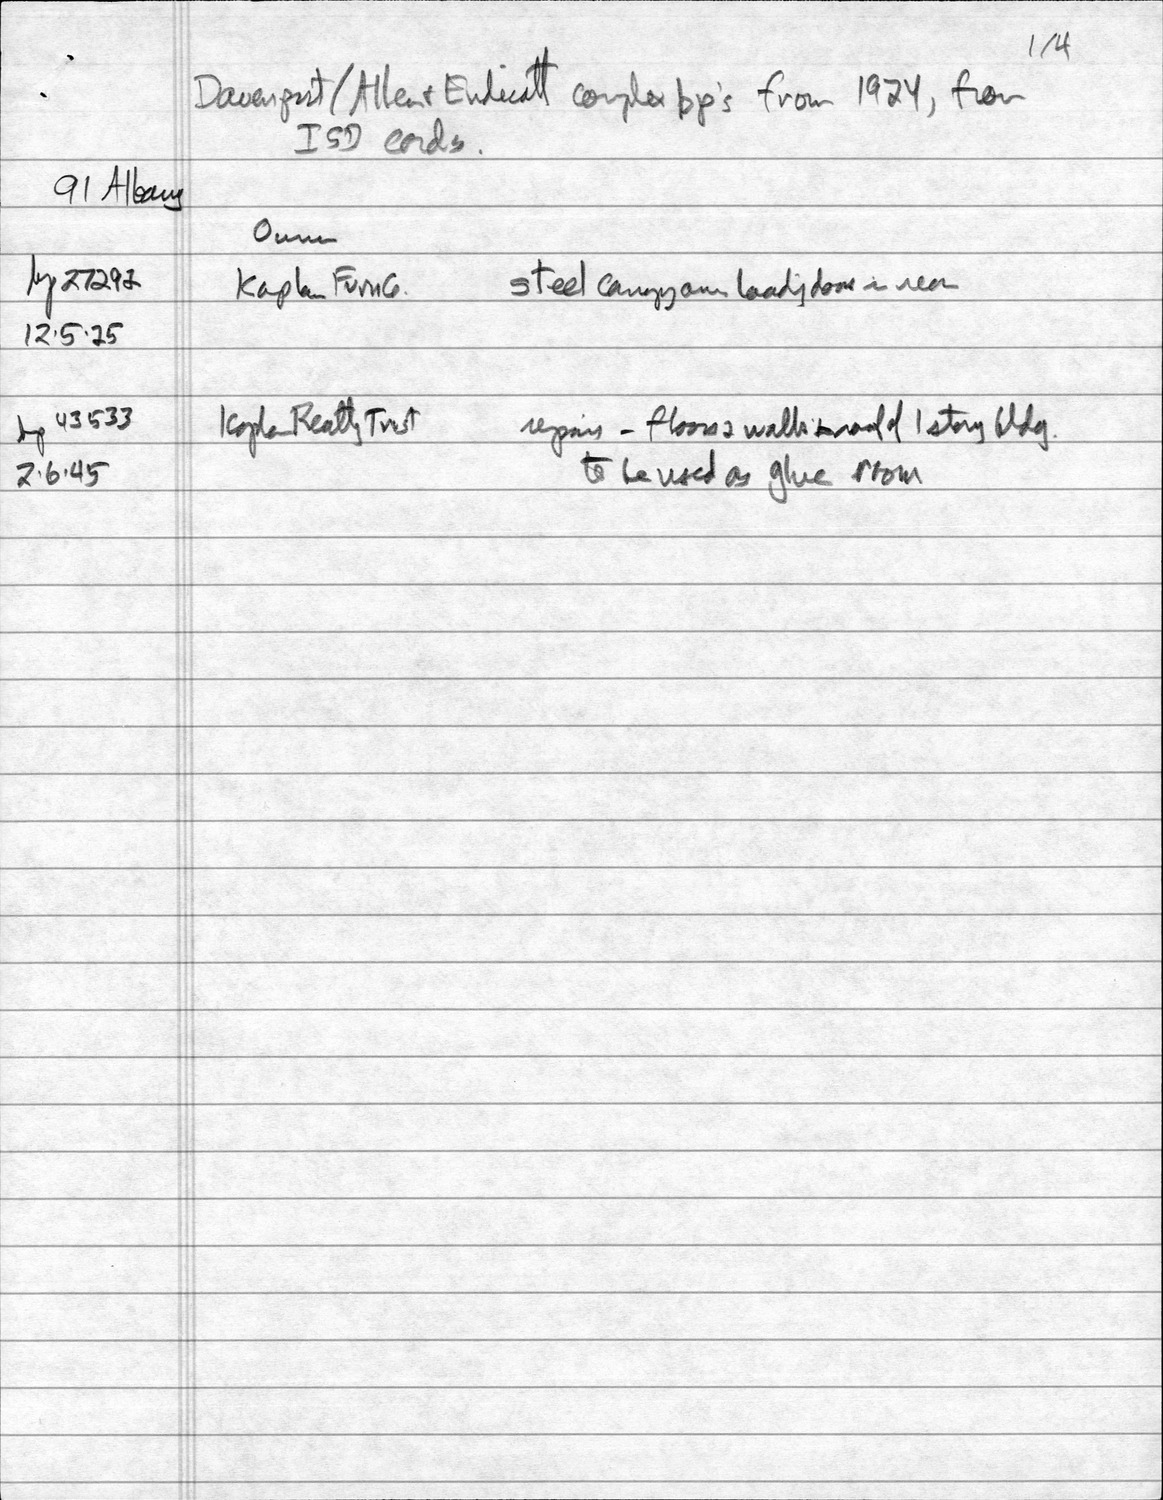 1/4
Davenport/Allen & Endicott complex bp's from 1924, from
ISD cards.
91 Albany
Owner
bp 27292 Kaplan Furn Co. steel canopy over loading door in rear
12·5·25
bp 43533 Kaplan Realty Trust repairs - floors & walls of 1 story bldg.
2·6·45 to be used as glue room